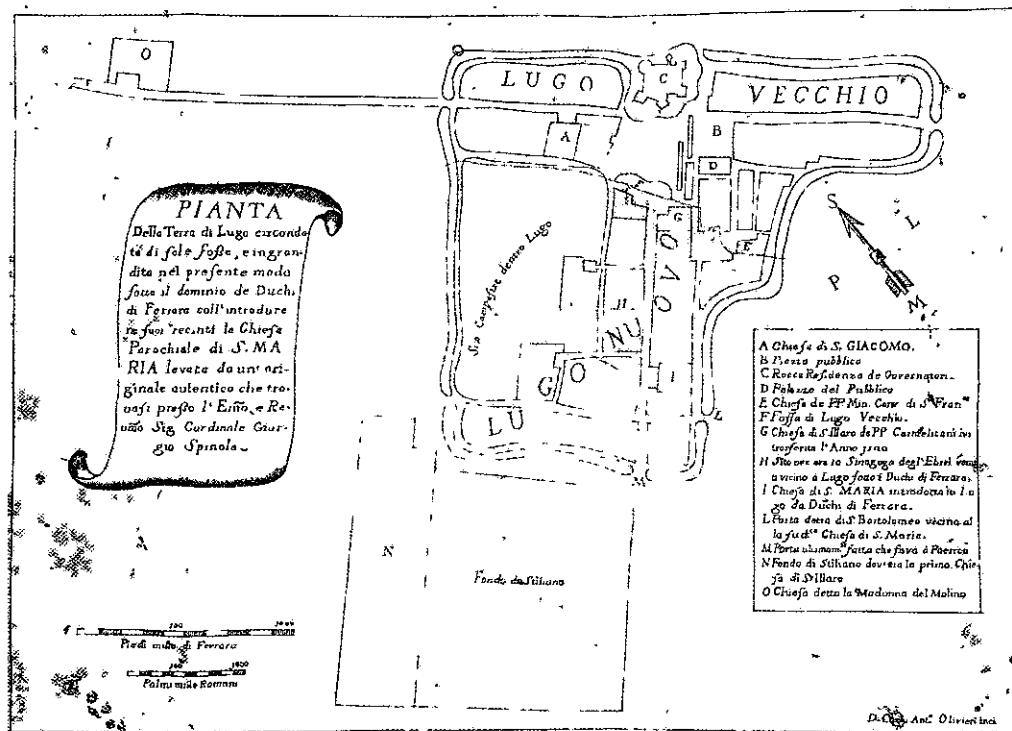 O
LUGO
C
VECCHIO
A
B
D
E
G
PIANTA
Della Terra di Lugo circonda
ta di sole fosse, e ingran-
dita nel presente modo
sotto il dominio de Duchi
di Ferrara coll' introdure
ne suoi recinti la Chiesa
Parochiale di S. MA
RIA levata da un' ori-
ginale autentico che tro-
vasi presso l' Emo, e Re-
Sig Cardinale Gior-
gio Spinola.
Sito Campestre dentro Lugo
LUGO NUOVO
H
L
M
S
M
P
L
A Chiesa di S. GIACOMO.
B Piazza pubblica
C Rocca Residenza de Governatori.
D Palazzo del Pubblico
E Chiesa de PP. Min. Conv. di S. Franco
F Fossa di Lugo Vecchio.
G Chiesa di S. Illaro de PP Carmelitani ivi
trasferita l' Anno
H Sito ove era la Sinagoga degl' Ebrei
vicino a Lugo sotto i Duchi di Ferrara.
I Chiesa di S. MARIA introdotta in Lu
go da Duchi di Ferrara.
L Porta detta di S. Bortolomeo vicina al
la sudta Chiesa di S. Maria.
M Porta fatta che
N Fondo di Stiliano dov' era la prima Chie
sa di S. Illaro
O Chiesa detta la Madonna del Molino
N
Fondo da Stiliano
Piedi mille di Ferrara
Palmi mille Romani
Ant. Olivieri inci